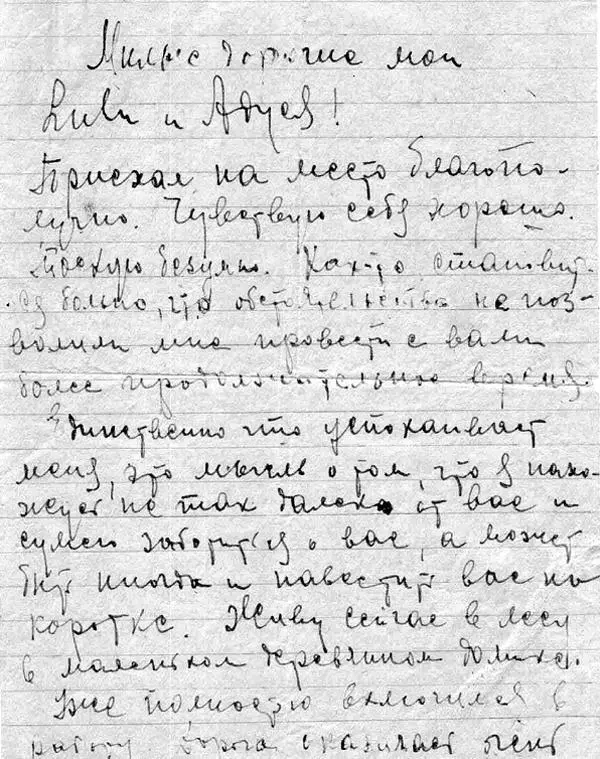 Милые дорогие мои
Lubi и Адуся!
Приехал на место благопо-
лучно. Чувствую себя хорошо.
Тоскую безумно. Как-то становит-
ся больно, что обстоятельства не поз-
волили мне провести с вами
более продолжительное время.
Единственно что успокаивает
меня, это мысль о том, что я нахо-
жусь не так далеко от вас и
сумею заботиться о вас, а может
быть иногда и навестить вас на
коротке. Живу сейчас в лесу
в маленьком деревянном домике.
Уже полностью включился в
работу. Дорога оказалась очень